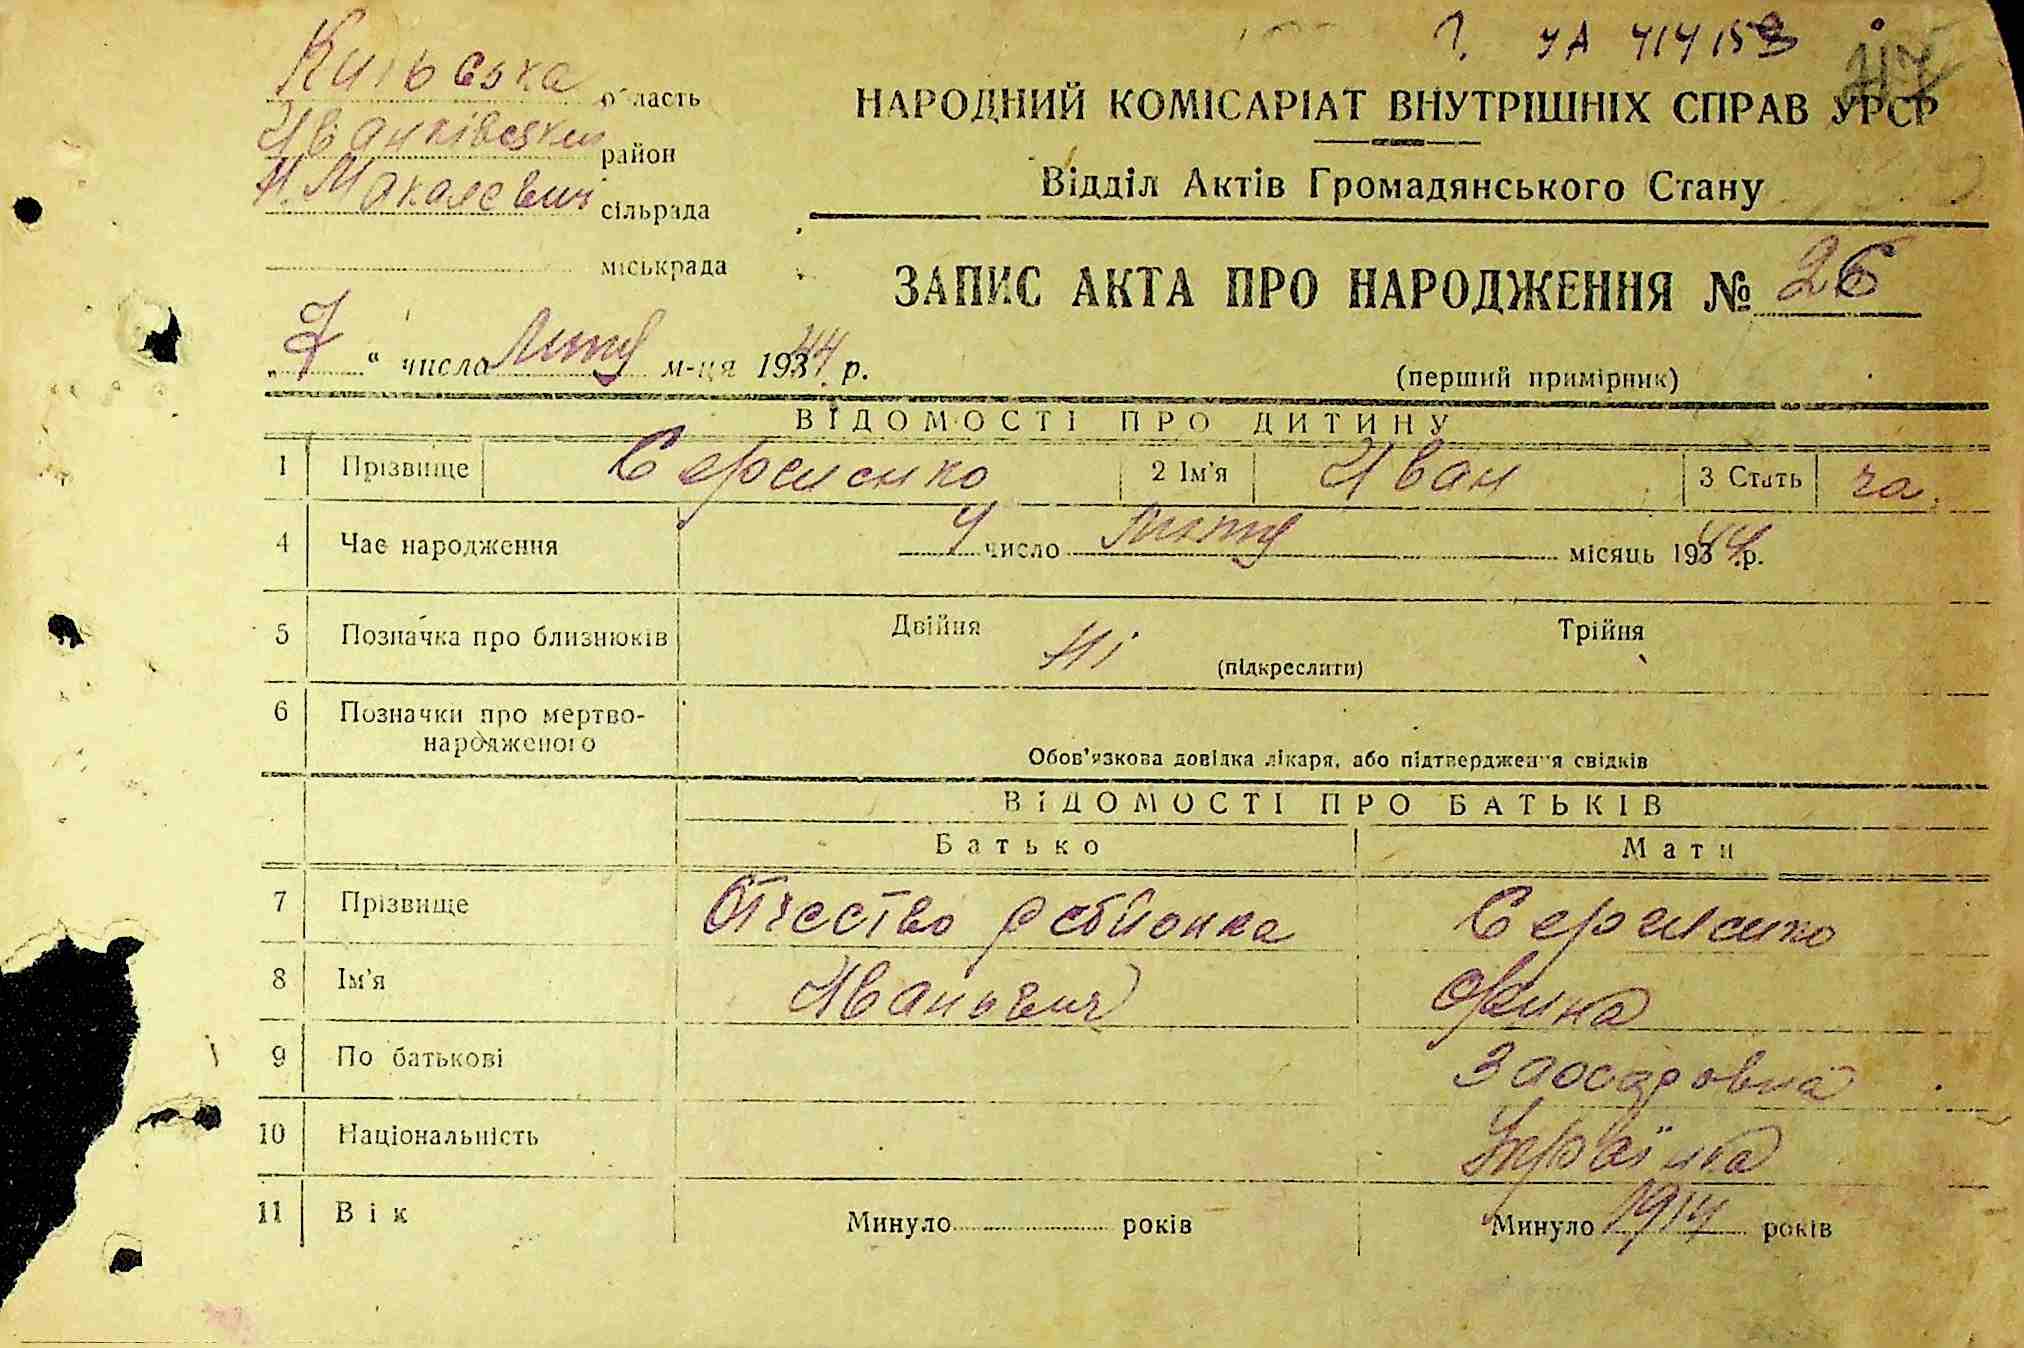 УА 414153
117
Київська область
Іванківський район
Н. Макалевич сільрада
міськрада
НАРОДНИЙ КОМІСАРІАТ ВНУТРІШНІХ СПРАВ УРСР
Відділ Актів Громадянського Стану
ЗАПИС АКТА ПРО НАРОДЖЕННЯ № 26
„7“ числа Люту м-ця 1944 р.
(перший примірник)
ВІДОМОСТІ ПРО ДИТИНУ
1 Прізвище Сергиенко 2 Ім'я Иван 3 Стать ча.
4 Час народження 4 число Люту місяць 1944 р.
5 Позначка про близнюків Двійня Ні (підкреслити) Трійня
6 Позначки про мертво-
народженого
Обов'язкова довідка лікаря, або підтвердження свідків
ВІДОМОСТІ ПРО БАТЬКІВ
Батько Мати
7 Прізвище Отчество ребионка Сергиенко
8 Ім'я Иванович
9 По батькові
10 Національність Українка
11 Вік Минуло років Минуло 1914 років